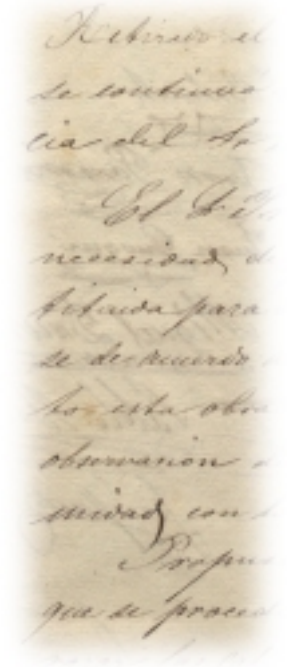 Retirado el
se continuo
cia del
El
necesidad, d
tituida para
se de acuerdo
to esta obra
observacion
midad, con
Propu
que se proced